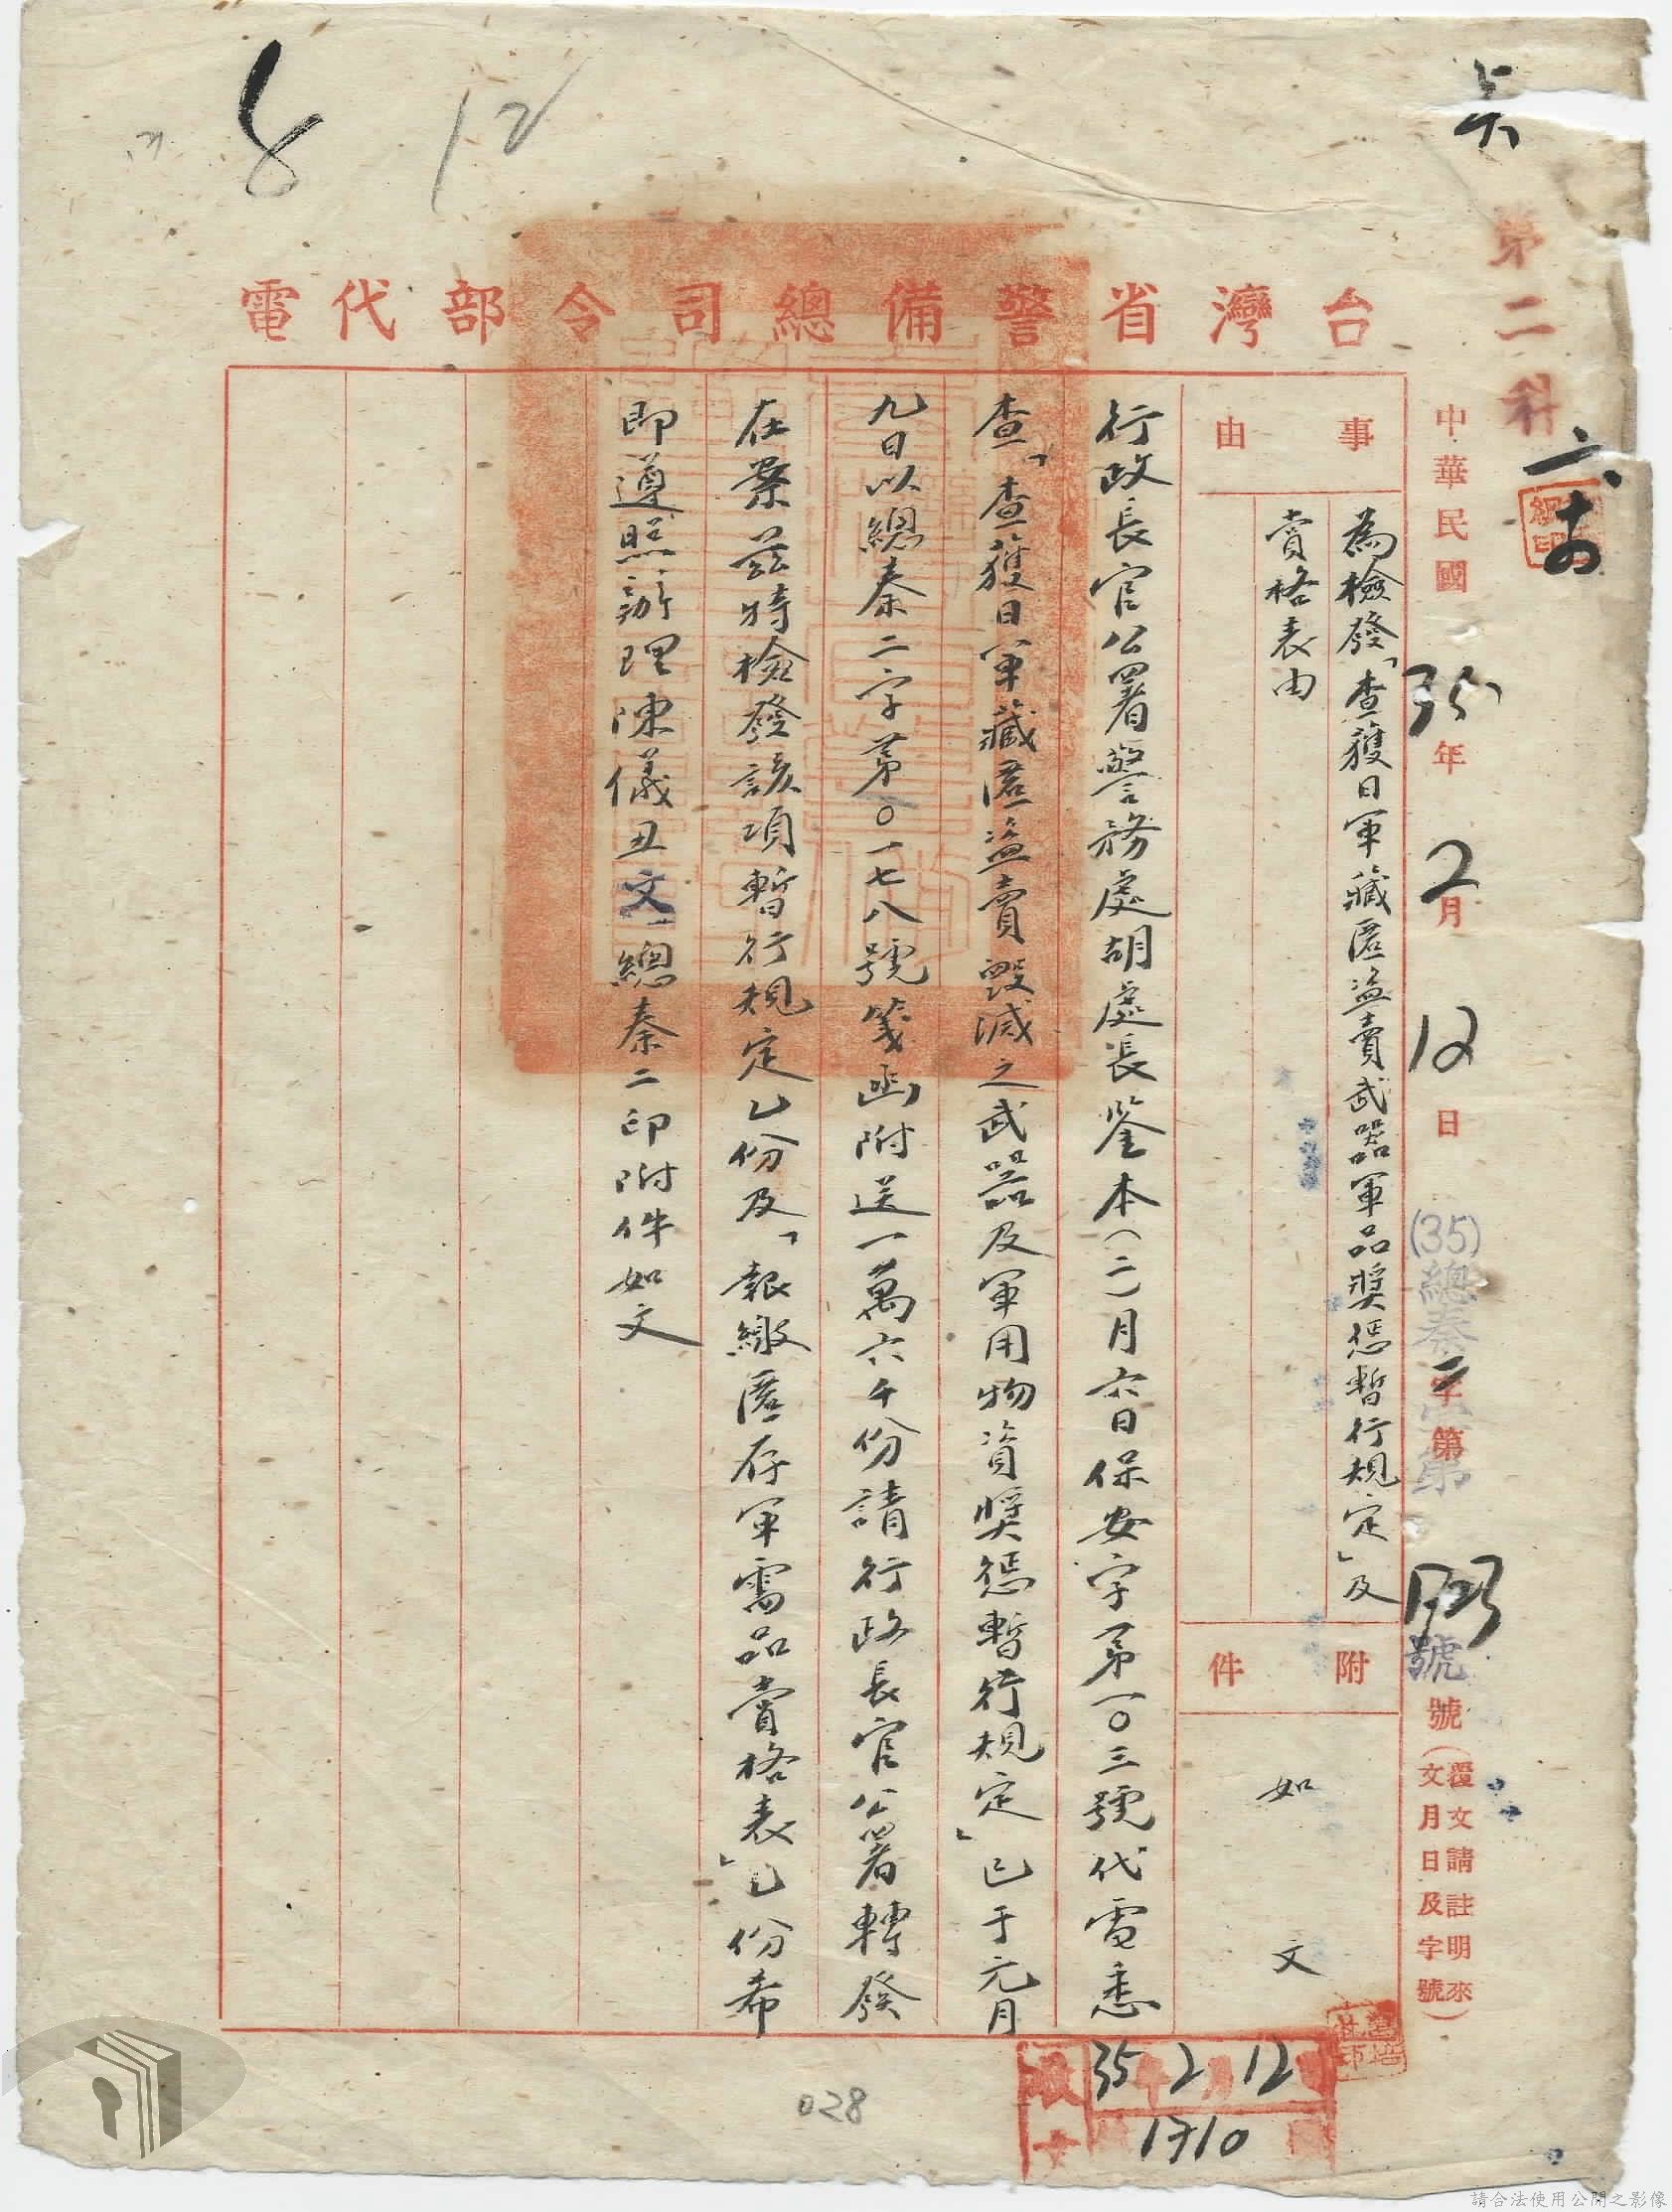 台灣省警備總司令部代電
第二科
中華民國35年2月12日
(35)總秦二字第
號
號(覆文請註明來文月日及字號)
事由
為檢發「查獲日軍藏匿盜賣武器軍品獎懲暫行規定」及
賞格表由
附件
如文
行政長官公署警務處胡處長鑒本(二)月六日保安字第一〇三號代電悉
查「查獲日軍藏匿盜賣毀滅之武器及軍用物資獎懲暫行規定」已于元月
九日以總秦二字第〇一七八號箋函附送一萬六千份請行政長官公署轉發
在案茲特檢發該項暫行規定乙份及「報繳匿存軍需品賞格表」乙份希
即遵照辦理陳儀丑文總秦二印附件如文
8
12
收文
35 2 12
1710
028
請合法使用公開之影像